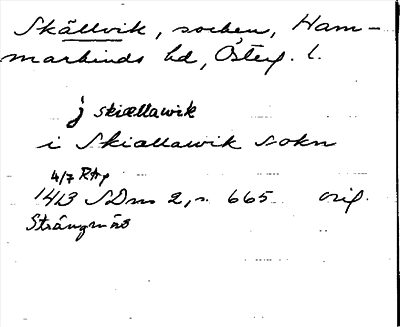 Skällvik, socken, Ham-
markinds hd, Österg. l.
j skiællawik
i Skiallawik sokn
4/7 RAp
1413 SDns 2, s. 665 orig.
Strängnäs